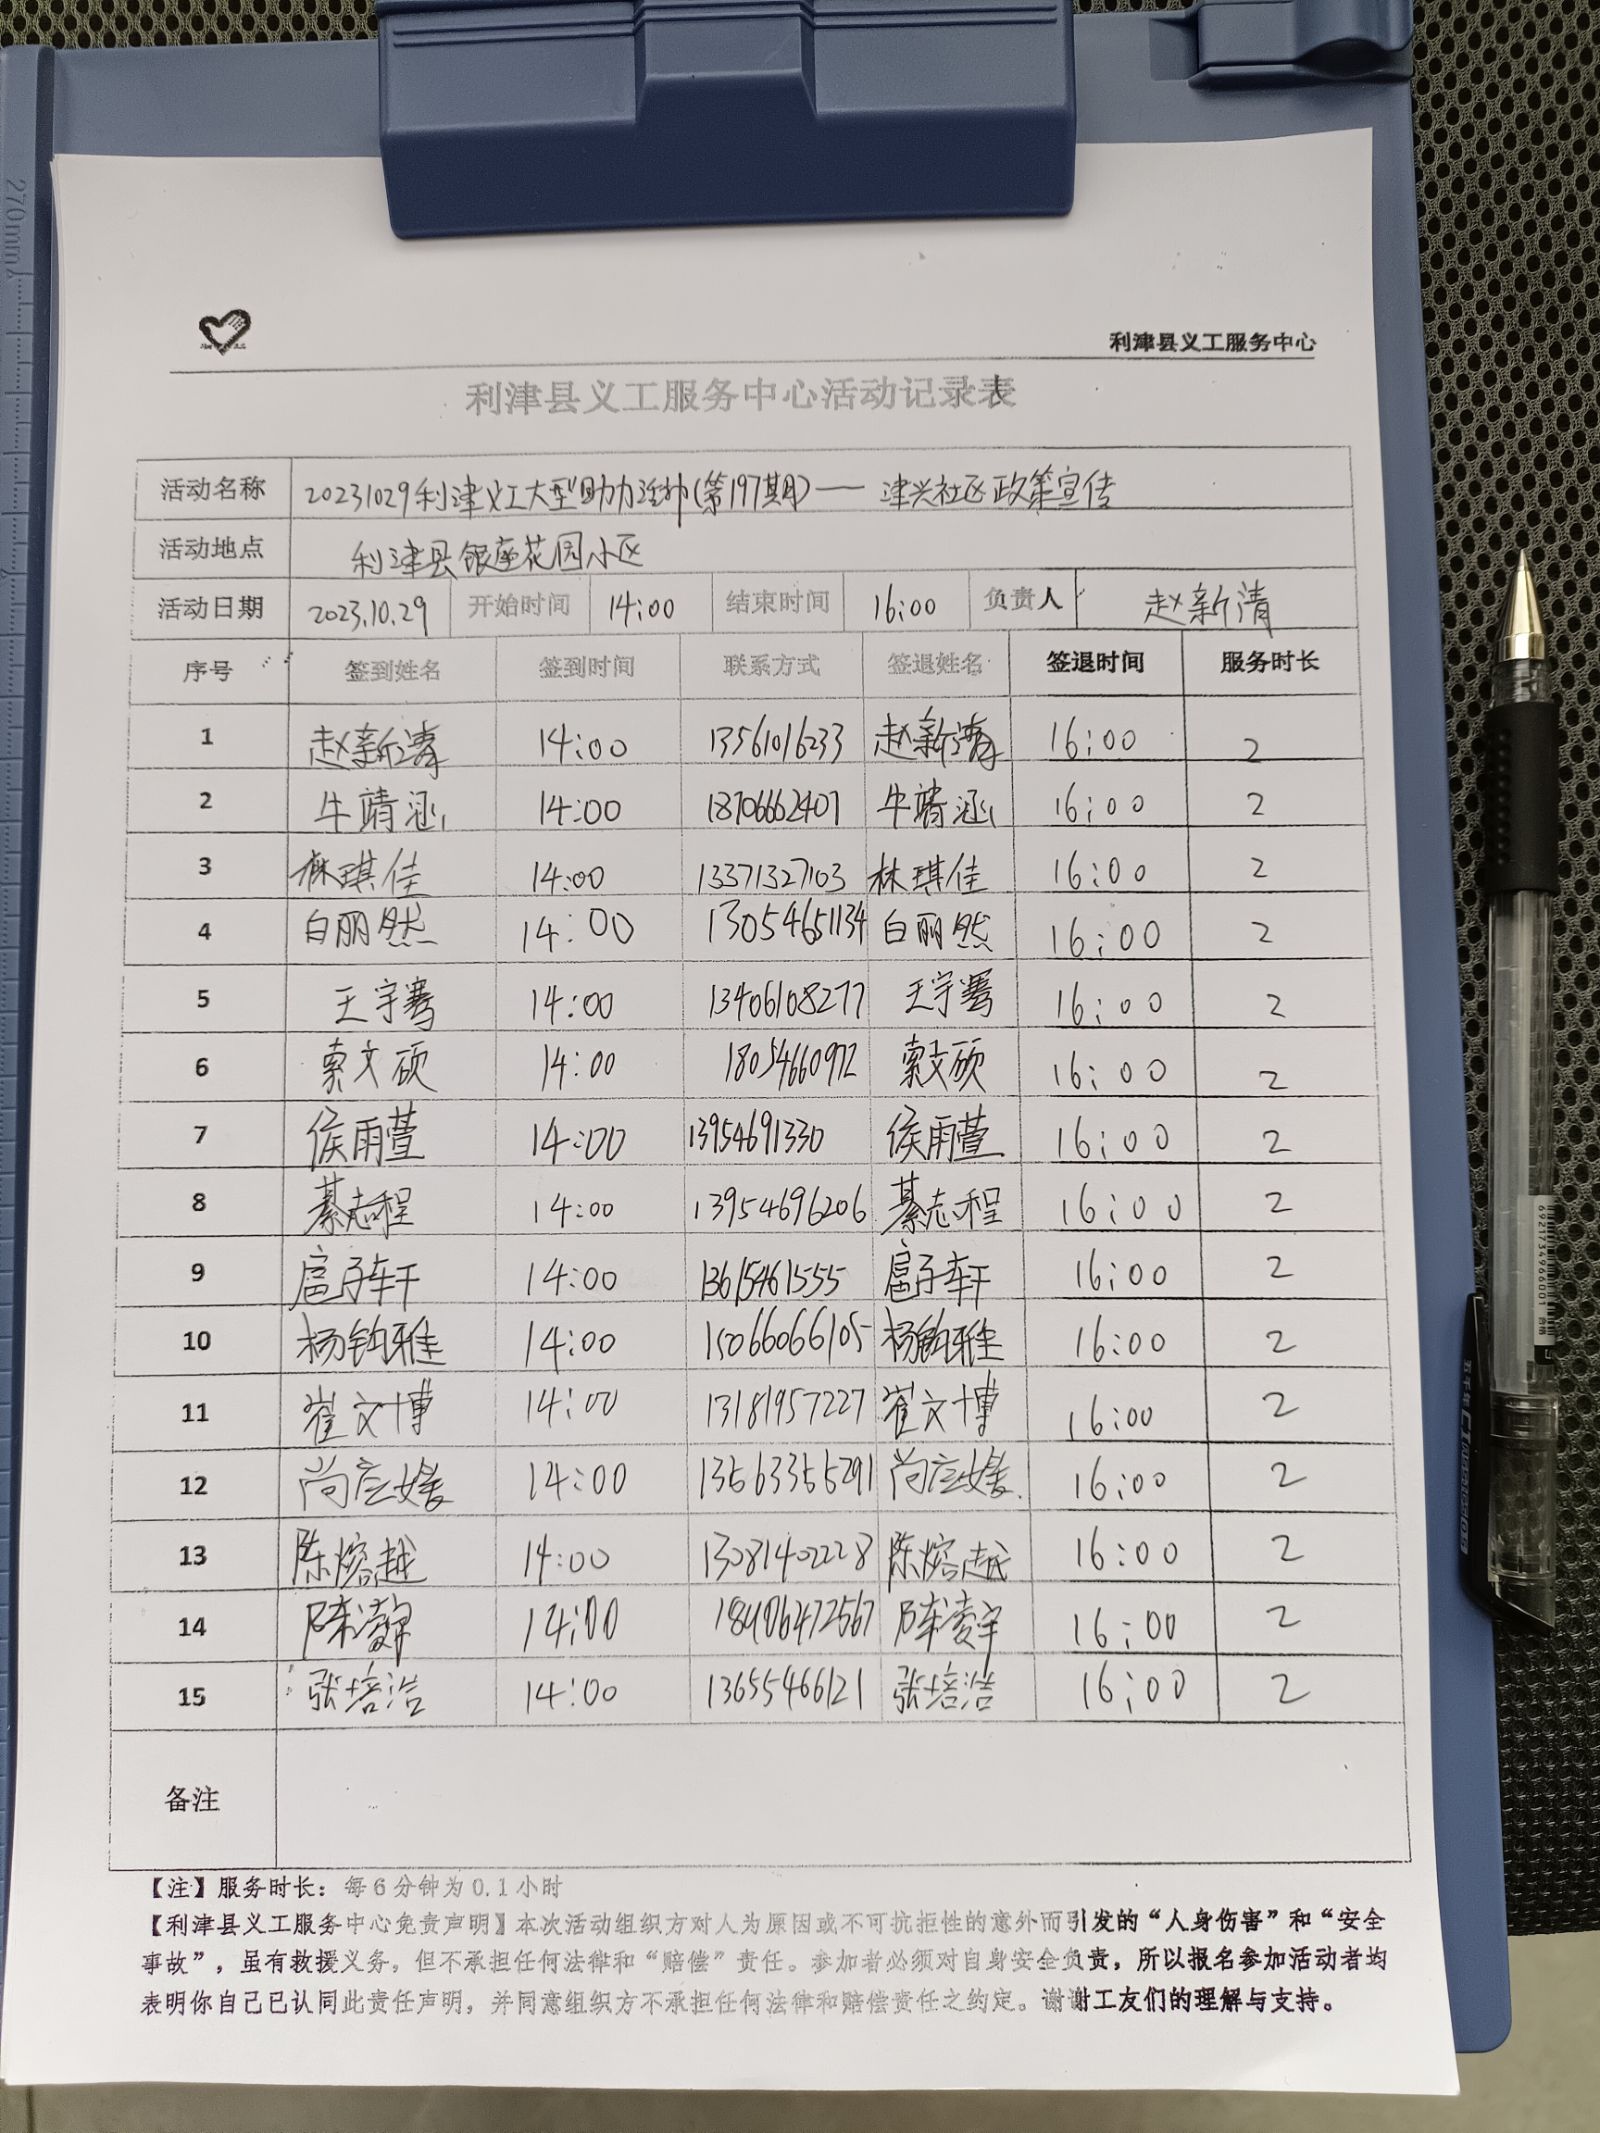 270mm
利津县义工服务中心
利津县义工服务中心活动记录表
活动名称 20231029利津义工大型助力活动(第197期)—— 津兴社区政策宣传
活动地点 利津县银座花园小区
活动日期 2023.10.29 开始时间 14:00 结束时间 16:00 负责人 赵新清
序号 签到姓名 签到时间 联系方式 签退姓名 签退时间 服务时长
1 赵新清 14:00 13561016233 赵新清 16:00 2
2 牛靖涵 14:00 18706662407 牛靖涵 16:00 2
3 林琪佳 14:00 13371327103 林琪佳 16:00 2
4 白丽然 14:00 13054651134 白丽然 16:00 2
5 王宇骞 14:00 13406108277 王宇骞 16:00 2
6 索文硕 14:00 18054660972 索文硕 16:00 2
7 侯雨萱 14:00 13954691330 侯雨萱 16:00 2
8 綦志程 14:00 13954696206 綦志程 16:00 2
9 扈子轩 14:00 13615461555 扈子轩 16:00 2
10 杨钧雅 14:00 15066066105 杨钧雅 16:00 2
11 崔文博 14:00 13181957227 崔文博 16:00 2
12 尚应媛 14:00 13563355291 尚应媛 16:00 2
13 陈熔越 14:00 13081402228 陈熔越 16:00 2
14 陈凌宇 14:00 陈凌宇 16:00 2
15 张培浩 14:00 13655466121 张培浩 16:00 2
备注
【注】服务时长：每6分钟为0.1小时
【利津县义工服务中心免责声明】本次活动组织方对人为原因或不可抗拒性的意外而引发的“人身伤害”和“安全
事故”，虽有救援义务，但不承担任何法律和“赔偿”责任。参加者必须对自身安全负责，所以报名参加活动者均
表明你自己已认同此责任声明，并同意组织方不承担任何法律和赔偿责任之约定。谢谢工友们的理解与支持。
6921734966001